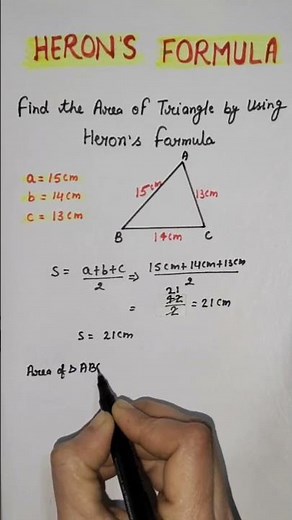 HERON'S FORMULA
Find the Area of Triangle by Using
Heron's farmula
a = 15cm
b = 14cm
c = 13cm
A
15cm
13cm
B
14cm
C
S = a+b+c/2 ⇒ 15cm+14cm+13cm/2
= 21 42/2 = 21cm
S = 21cm
Area of Δ ABC